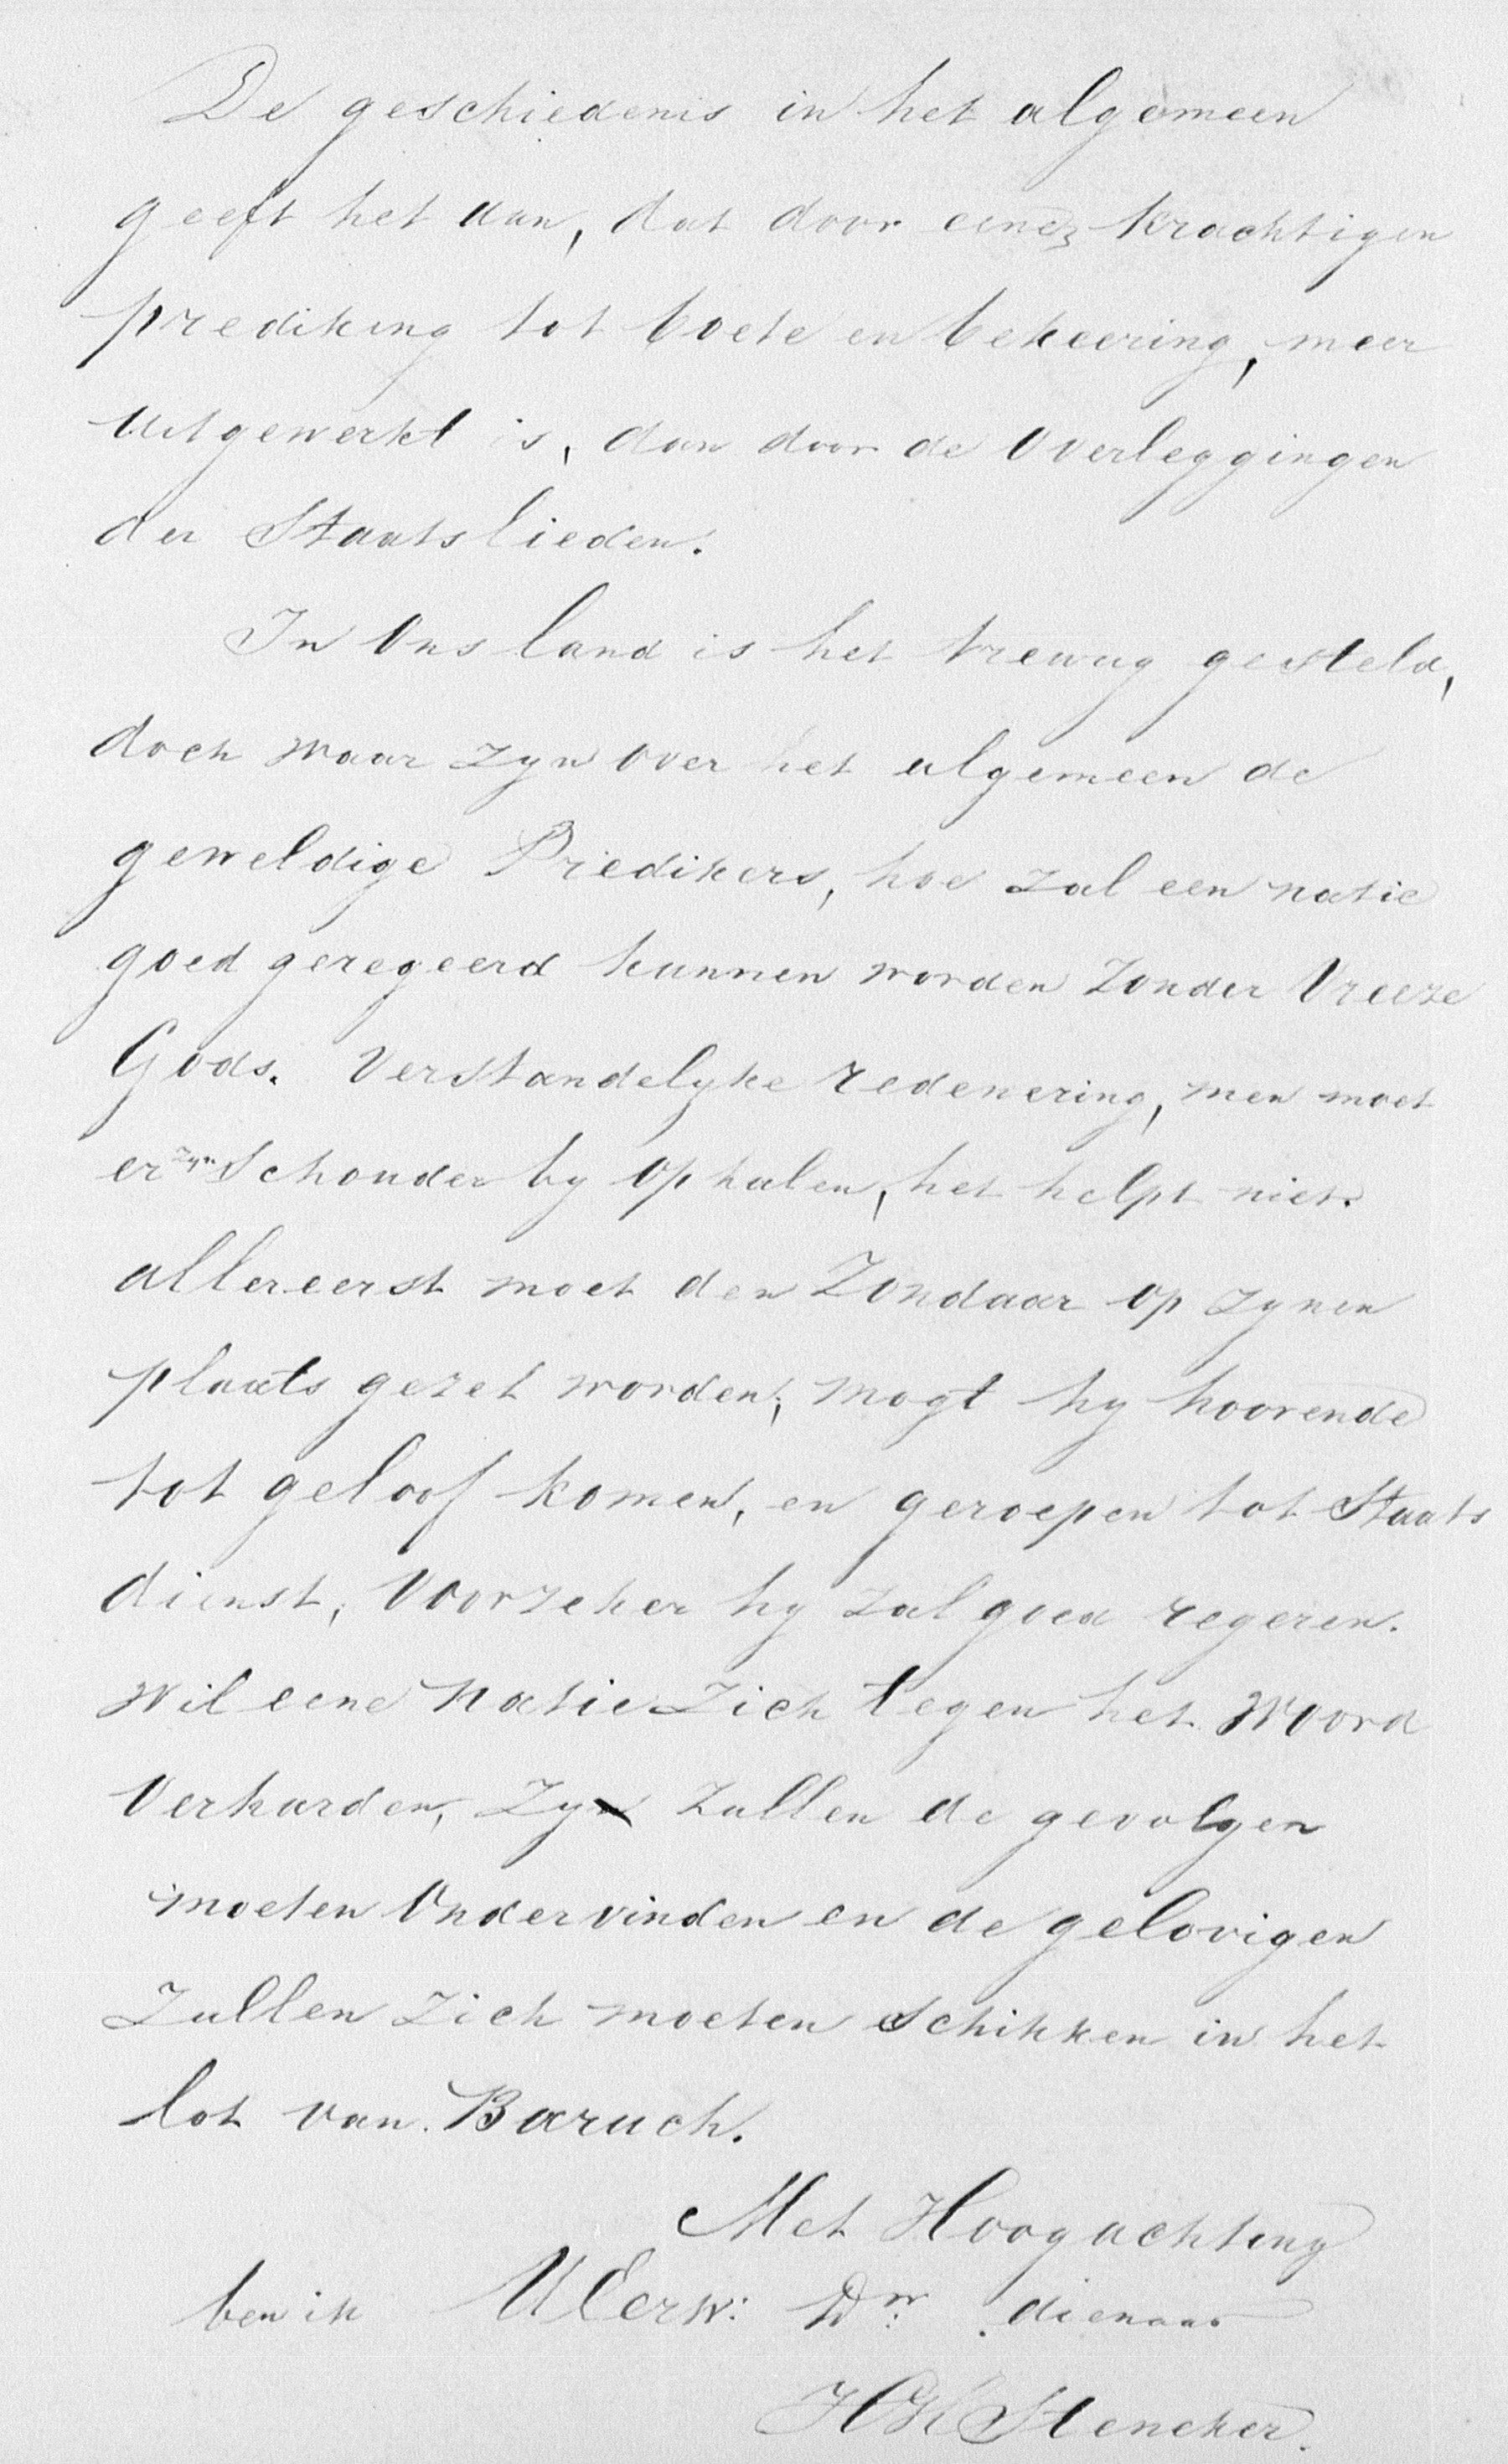 De geschiedenis in het algemeen
geeft het aan, dat door eenen krachtigen
prediking tot boete en bekeering, meer
uitgewerkt is, dan door de Overleggingen
der Staatslieden.
In Ons land is het treurig gesteld,
doch waar zyn over het algemeen de
geweldige Predikers, hoe zal een natie
goed geregeerd kunnen worden zonder Vreeze
Gods. Verstandelyke redenering, men moet
er zyn Schouder by ophalen, het helpt niet.
allereerst moet den Zondaar op zynen
plaats gezet worden; mogt hy hoorende
tot geloof komen, en geroepen tot Staats
dienst, Voorzeker hy zal goed regeren.
wil eene natie Zich tegen het Woord
Verharden, Zy zullen de gevolgen
moeten Ondervinden en de gelovigen
Zullen Zich moeten Schikken in het
lot van Baruch.
Met Hoogachting
ben ik UEerw: Dw: dienaar
Stencker.